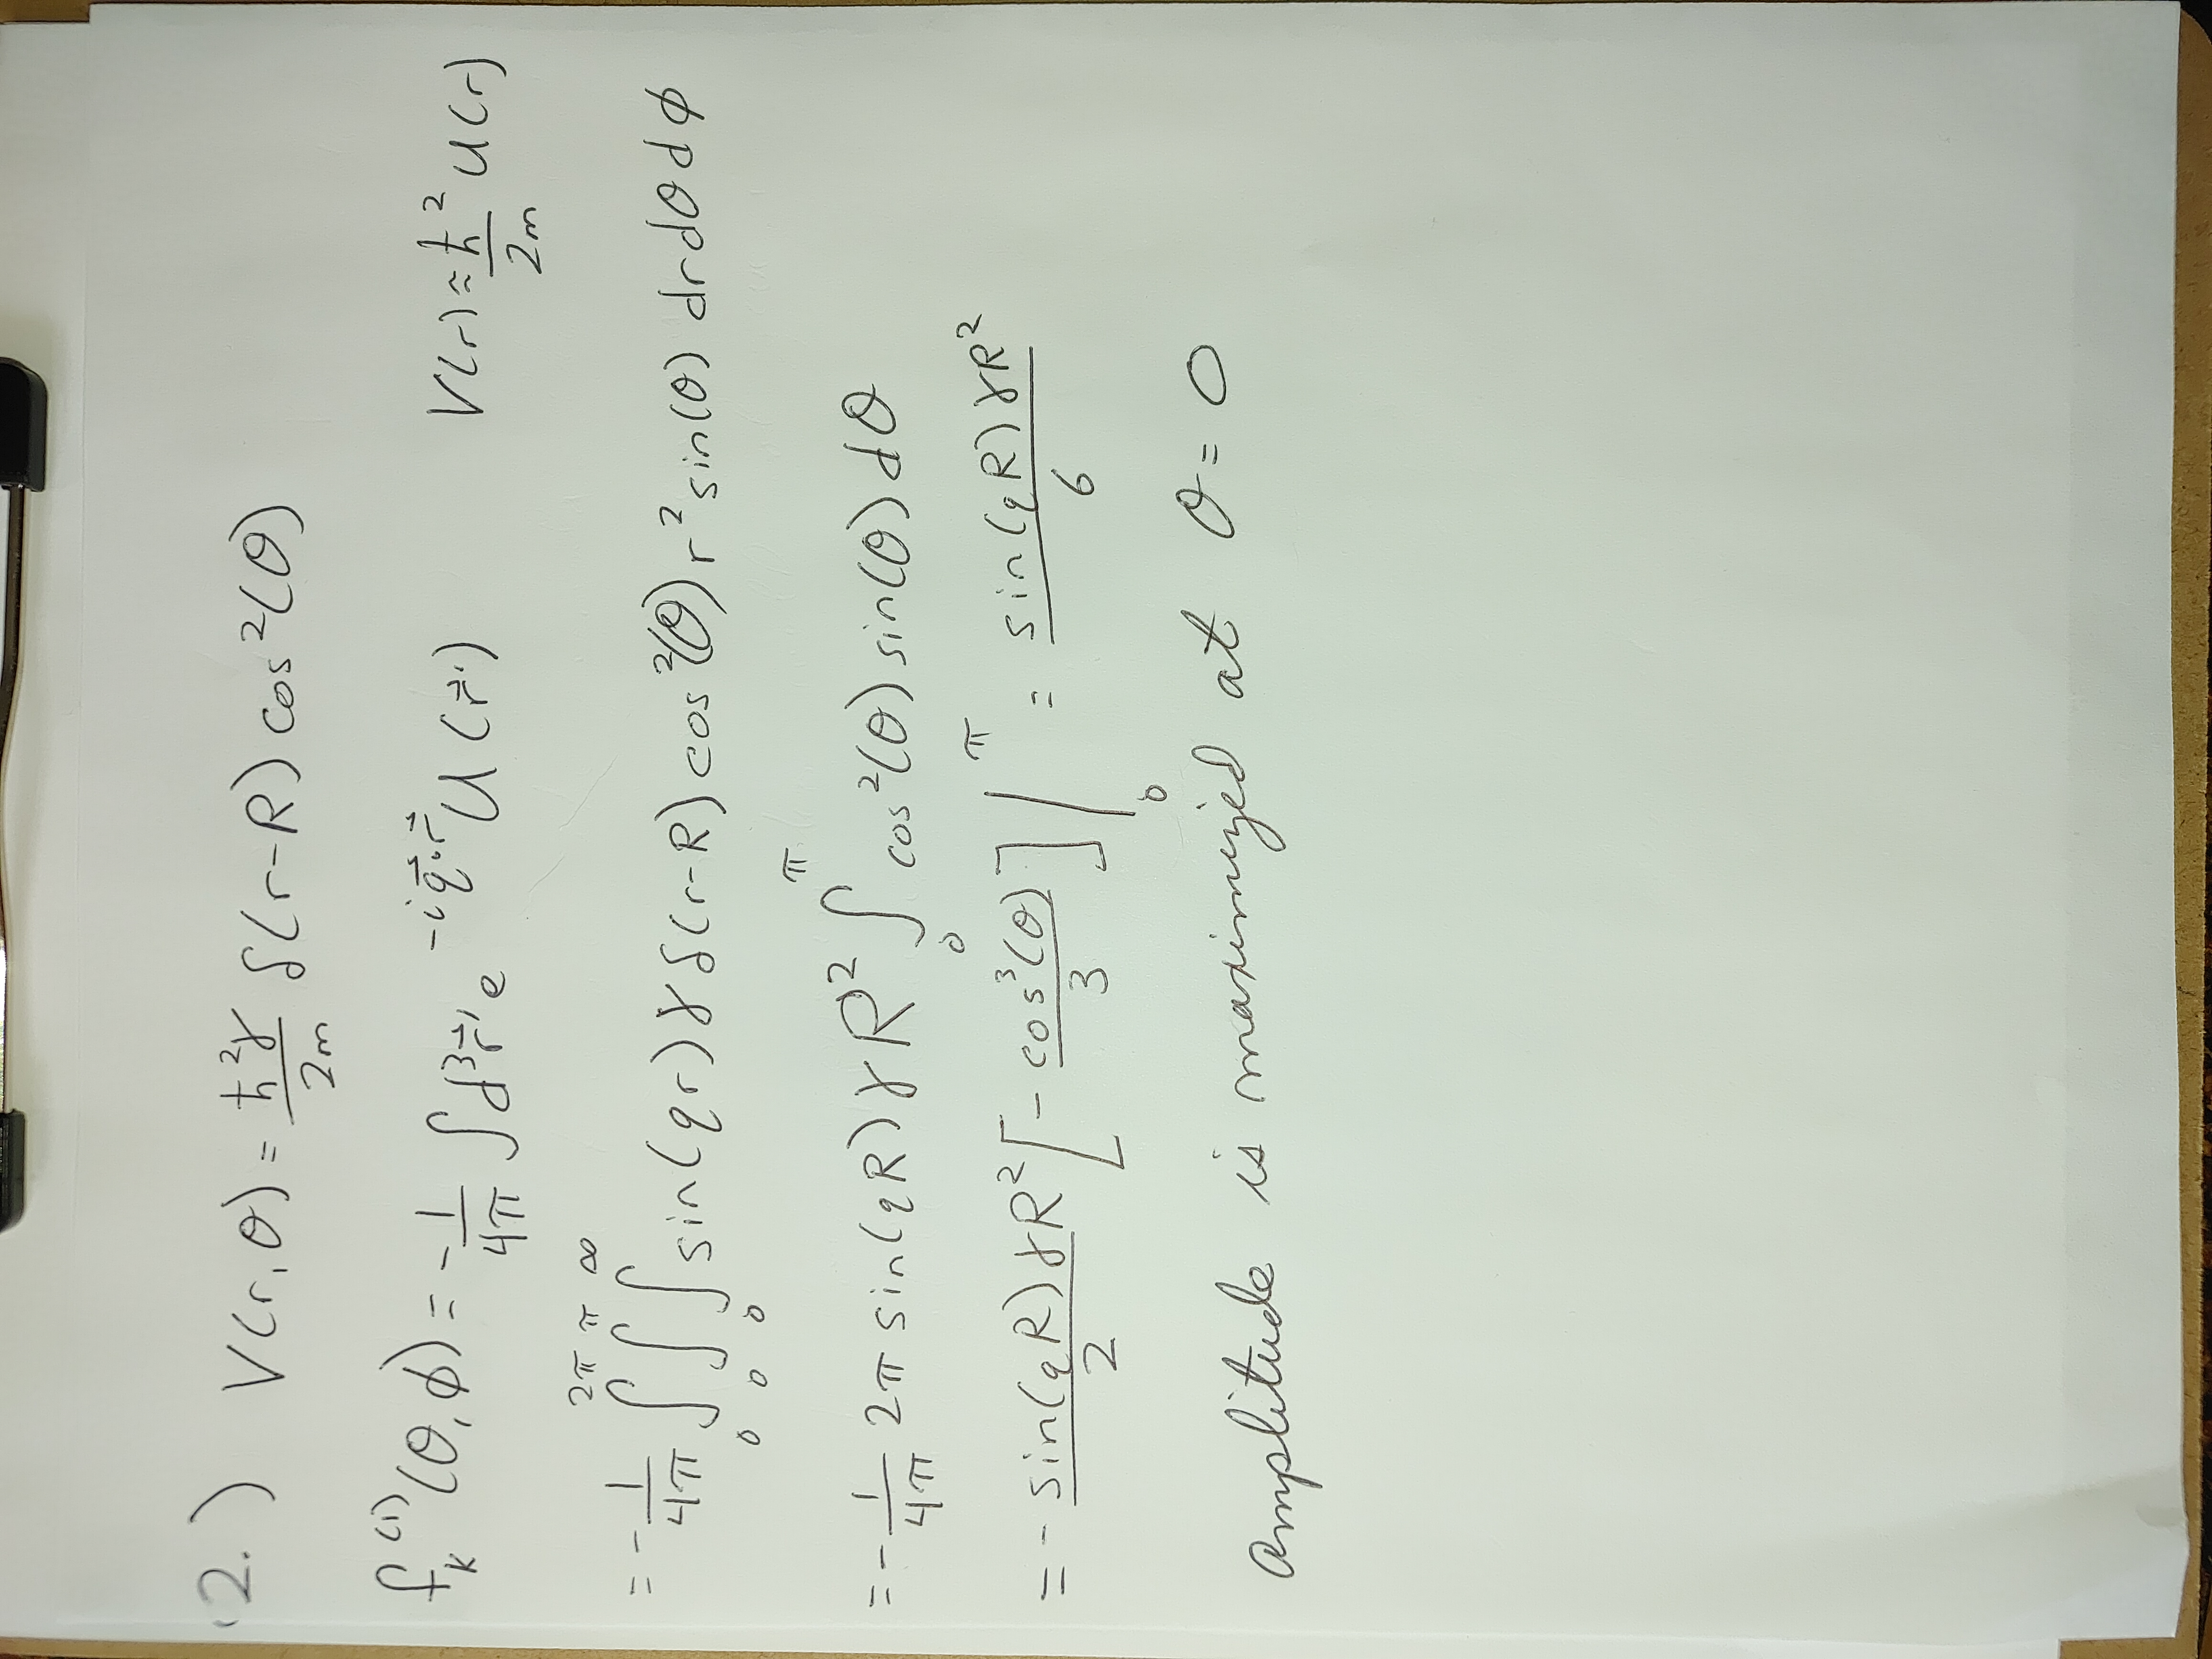 2.) V(r,θ) = ħ²γ/2m δ(r-R) cos²(θ)
f_k^(1)(θ,ϕ) = -1/4π ∫d³r⃗' e^(-iq⃗·r⃗) U(r⃗') V(r) ≈ ħ²/2m U(r)
= -1/4π ∫₀^2π ∫₀^π ∫₀^∞ sin(qr) γ δ(r-R) cos²(θ) r² sin(θ) dr dθ dϕ
= -1/4π 2π sin(qR) γ R² ∫₀^π cos²(θ) sin(θ) dθ
= - sin(qR) γR²/2 [- cos³(θ)/3] |₀^π = sin(qR) γR²/6
Amplitude is maximized at θ = 0